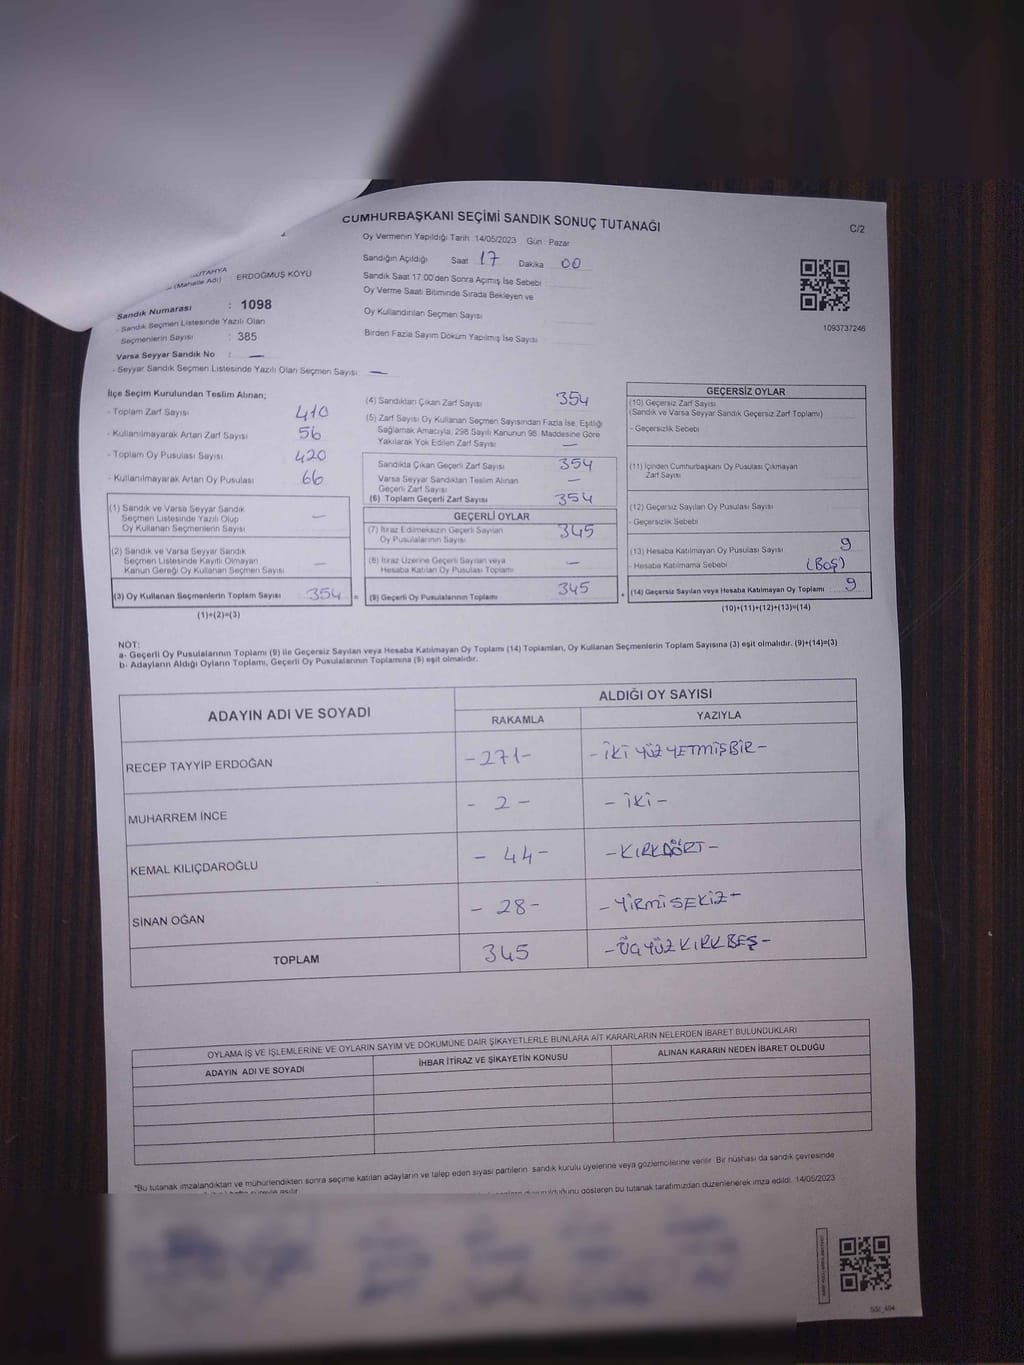 CUMHURBAŞKANI SEÇİMİ SANDIK SONUÇ TUTANAĞI
C/2
Oy Vermenin Yapıldığı Tarih : 14/05/2023 Gün : Pazar
Sandığın Açıldığı Saat 17 Dakika 00
Sandık Saat 17.00'den Sonra Açımış İse Sebebi
Oy Verme Saati Bitiminde Sırada Bekleyen ve
Oy Kullandırılan Seçmen Sayısı
Birden Fazla Sayım Döküm Yapılmış İse Sayısı
1093737246
KÜTAHYA
(Mahalle Adı) ERDOĞMUŞ KÖYÜ
Sandık Numarası : 1098
- Sandık Seçmen Listesinde Yazılı Olan
Seçmenlerin Sayısı : 385
Varsa Seyyar Sandık No : —
- Seyyar Sandık Seçmen Listesinde Yazılı Olan Seçmen Sayısı : —
İlçe Seçim Kurulundan Teslim Alınan;
- Toplam Zarf Sayısı 410
- Kullanılmayarak Artan Zarf Sayısı 56
- Toplam Oy Pusulası Sayısı 420
- Kullanılmayarak Artan Oy Pusulası 66
(1) Sandık ve Varsa Seyyar Sandık
Seçmen Listesinde Yazılı Olup
Oy Kullanan Seçmenlerin Sayısı —
(2) Sandık ve Varsa Seyyar Sandık
Seçmen Listesinde Kayıtlı Olmayan
Kanun Gereği Oy Kullanan Seçmen Sayısı —
(3) Oy Kullanan Seçmenlerin Toplam Sayısı 354 =
(1)+(2)=(3)
(4) Sandıktan Çıkan Zarf Sayısı 354
(5) Zarf Sayısı Oy Kullanan Seçmen Sayısından Fazla İse, Eşitliği
Sağlamak Amacıyla, 298 Sayılı Kanunun 98. Maddesine Göre
Yakılarak Yok Edilen Zarf Sayısı —
Sandıkta Çıkan Geçerli Zarf Sayısı 354
Varsa Seyyar Sandıktan Teslim Alınan
Geçerli Zarf Sayısı —
(6) Toplam Geçerli Zarf Sayısı 354
GEÇERLİ OYLAR
(7) İtiraz Edilmeksizin Geçerli Sayılan
Oy Pusulalarının Sayısı 345
(8) İtiraz Üzerine Geçerli Sayılan veya
Hesaba Katılan Oy Pusulası Toplamı —
(9) Geçerli Oy Pusulalarının Toplamı 345 +
GEÇERSİZ OYLAR
(10) Geçersiz Zarf Sayısı
(Sandık ve Varsa Seyyar Sandık Geçersiz Zarf Toplamı)
- Geçersizlik Sebebi
(11) İçinden Cumhurbaşkanı Oy Pusulası Çıkmayan
Zarf Sayısı
(12) Geçersiz Sayılan Oy Pusulası Sayısı
- Geçersizlik Sebebi
(13) Hesaba Katılmayan Oy Pusulası Sayısı 9
- Hesaba Katılmama Sebebi (BOŞ)
(14) Geçersiz Sayılan veya Hesaba Katılmayan Oy Toplamı 9
(10)+(11)+(12)+(13)=(14)
NOT:
a- Geçerli Oy Pusulalarının Toplamı (9) ile Geçersiz Sayılan veya Hesaba Katılmayan Oy Toplamı (14) Toplamları, Oy Kullanan Seçmenlerin Toplam Sayısına (3) eşit olmalıdır. (9)+(14)=(3)
b- Adayların Aldığı Oyların Toplamı, Geçerli Oy Pusulalarının Toplamına (9) eşit olmalıdır.
ADAYIN ADI VE SOYADI ALDIĞI OY SAYISI
RAKAMLA YAZIYLA
RECEP TAYYİP ERDOĞAN -271- -İKİ YÜZ YETMİŞBİR-
MUHARREM İNCE - 2 - - İKİ -
KEMAL KILIÇDAROĞLU - 44 - -KIRKDÖRT-
SİNAN OĞAN - 28 - -YİRMİSEKİZ-
TOPLAM 345 -ÜÇYÜZ KIRKBEŞ-
OYLAMA İŞ VE İŞLEMLERİNE VE OYLARIN SAYIM VE DÖKÜMÜNE DAİR ŞİKAYETLERLE BUNLARA AİT KARARLARIN NELERDEN İBARET BULUNDUKLARI
ADAYIN ADI VE SOYADI İHBAR İTİRAZ VE ŞİKAYETİN KONUSU ALINAN KARARIN NEDEN İBARET OLDUĞU
*Bu tutanak imzalandıktan ve mühürlendikten sonra seçime katılan adayların ve talep eden siyasi partilerin sandık kurulu üyelerine veya gözlemcilerine verilir. Bir nüshası da sandık çevresinde
gösteren bu tutanak tarafımızdan düzenlenerek imza edildi. 14/05/2023